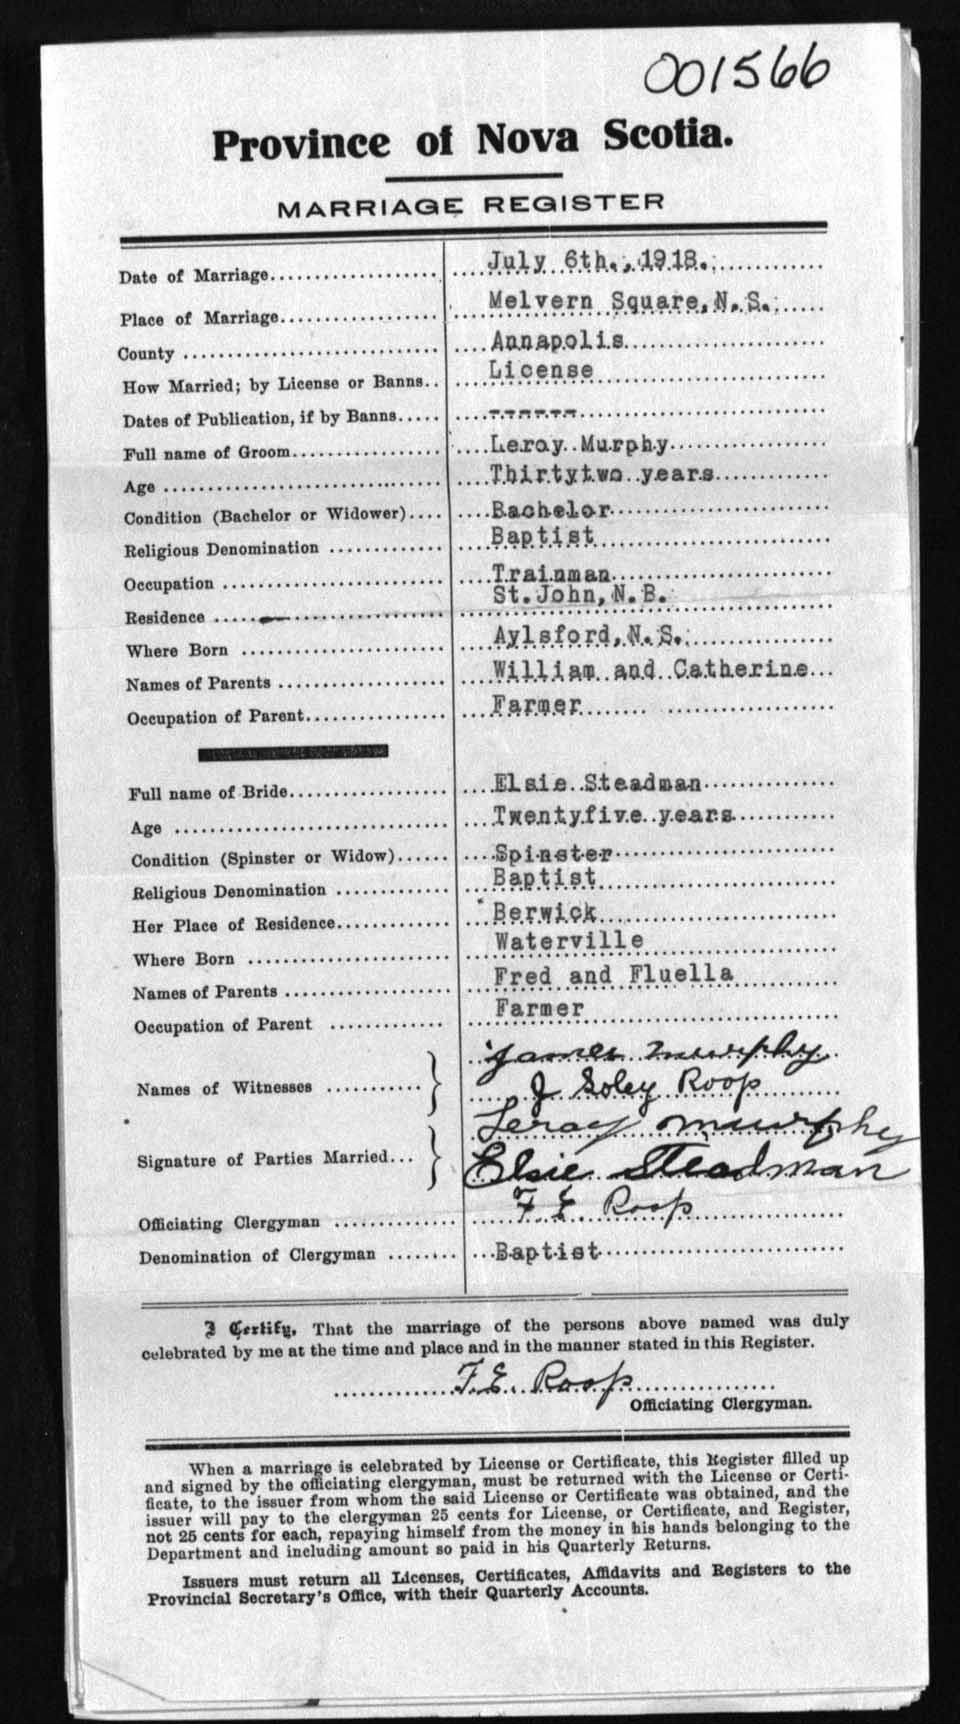 001566
Province of Nova Scotia.
MARRIAGE REGISTER
Date of Marriage July 6th., 1918.
Place of Marriage Melvern Square, N.S.
County Annapolis
How Married; by License or Banns License
Dates of Publication, if by Banns ------
Full name of Groom Leroy Murphy
Age Thirtytwo years
Condition (Bachelor or Widower) Bachelor
Religious Denomination Baptist
Occupation Trainman
Residence St. John, N.B.
Where Born Aylsford, N.S.
Names of Parents William and Catherine
Occupation of Parent Farmer
Full name of Bride Elsie Steadman
Age Twentyfive years
Condition (Spinster or Widow) Spinster
Religious Denomination Baptist
Her Place of Residence Berwick
Where Born Waterville
Names of Parents Fred and Fluella
Occupation of Parent Farmer
Names of Witnesses James Murphy
J Soley Roop
Signature of Parties Married Leroy Murphy
Elsie Steadman
Officiating Clergyman F. E. Roop
Denomination of Clergyman Baptist
I Certify, That the marriage of the persons above named was duly
celebrated by me at the time and place and in the manner stated in this Register.
F. E. Roop
Officiating Clergyman.
When a marriage is celebrated by License or Certificate, this Register filled up
and signed by the officiating clergyman, must be returned with the License or Certi-
ficate, to the issuer from whom the said License or Certificate was obtained, and the
issuer will pay to the clergyman 25 cents for License, or Certificate, and Register,
not 25 cents for each, repaying himself from the money in his hands belonging to the
Department and including amount so paid in his Quarterly Returns.
Issuers must return all Licenses, Certificates, Affidavits and Registers to the
Provincial Secretary's Office, with their Quarterly Accounts.